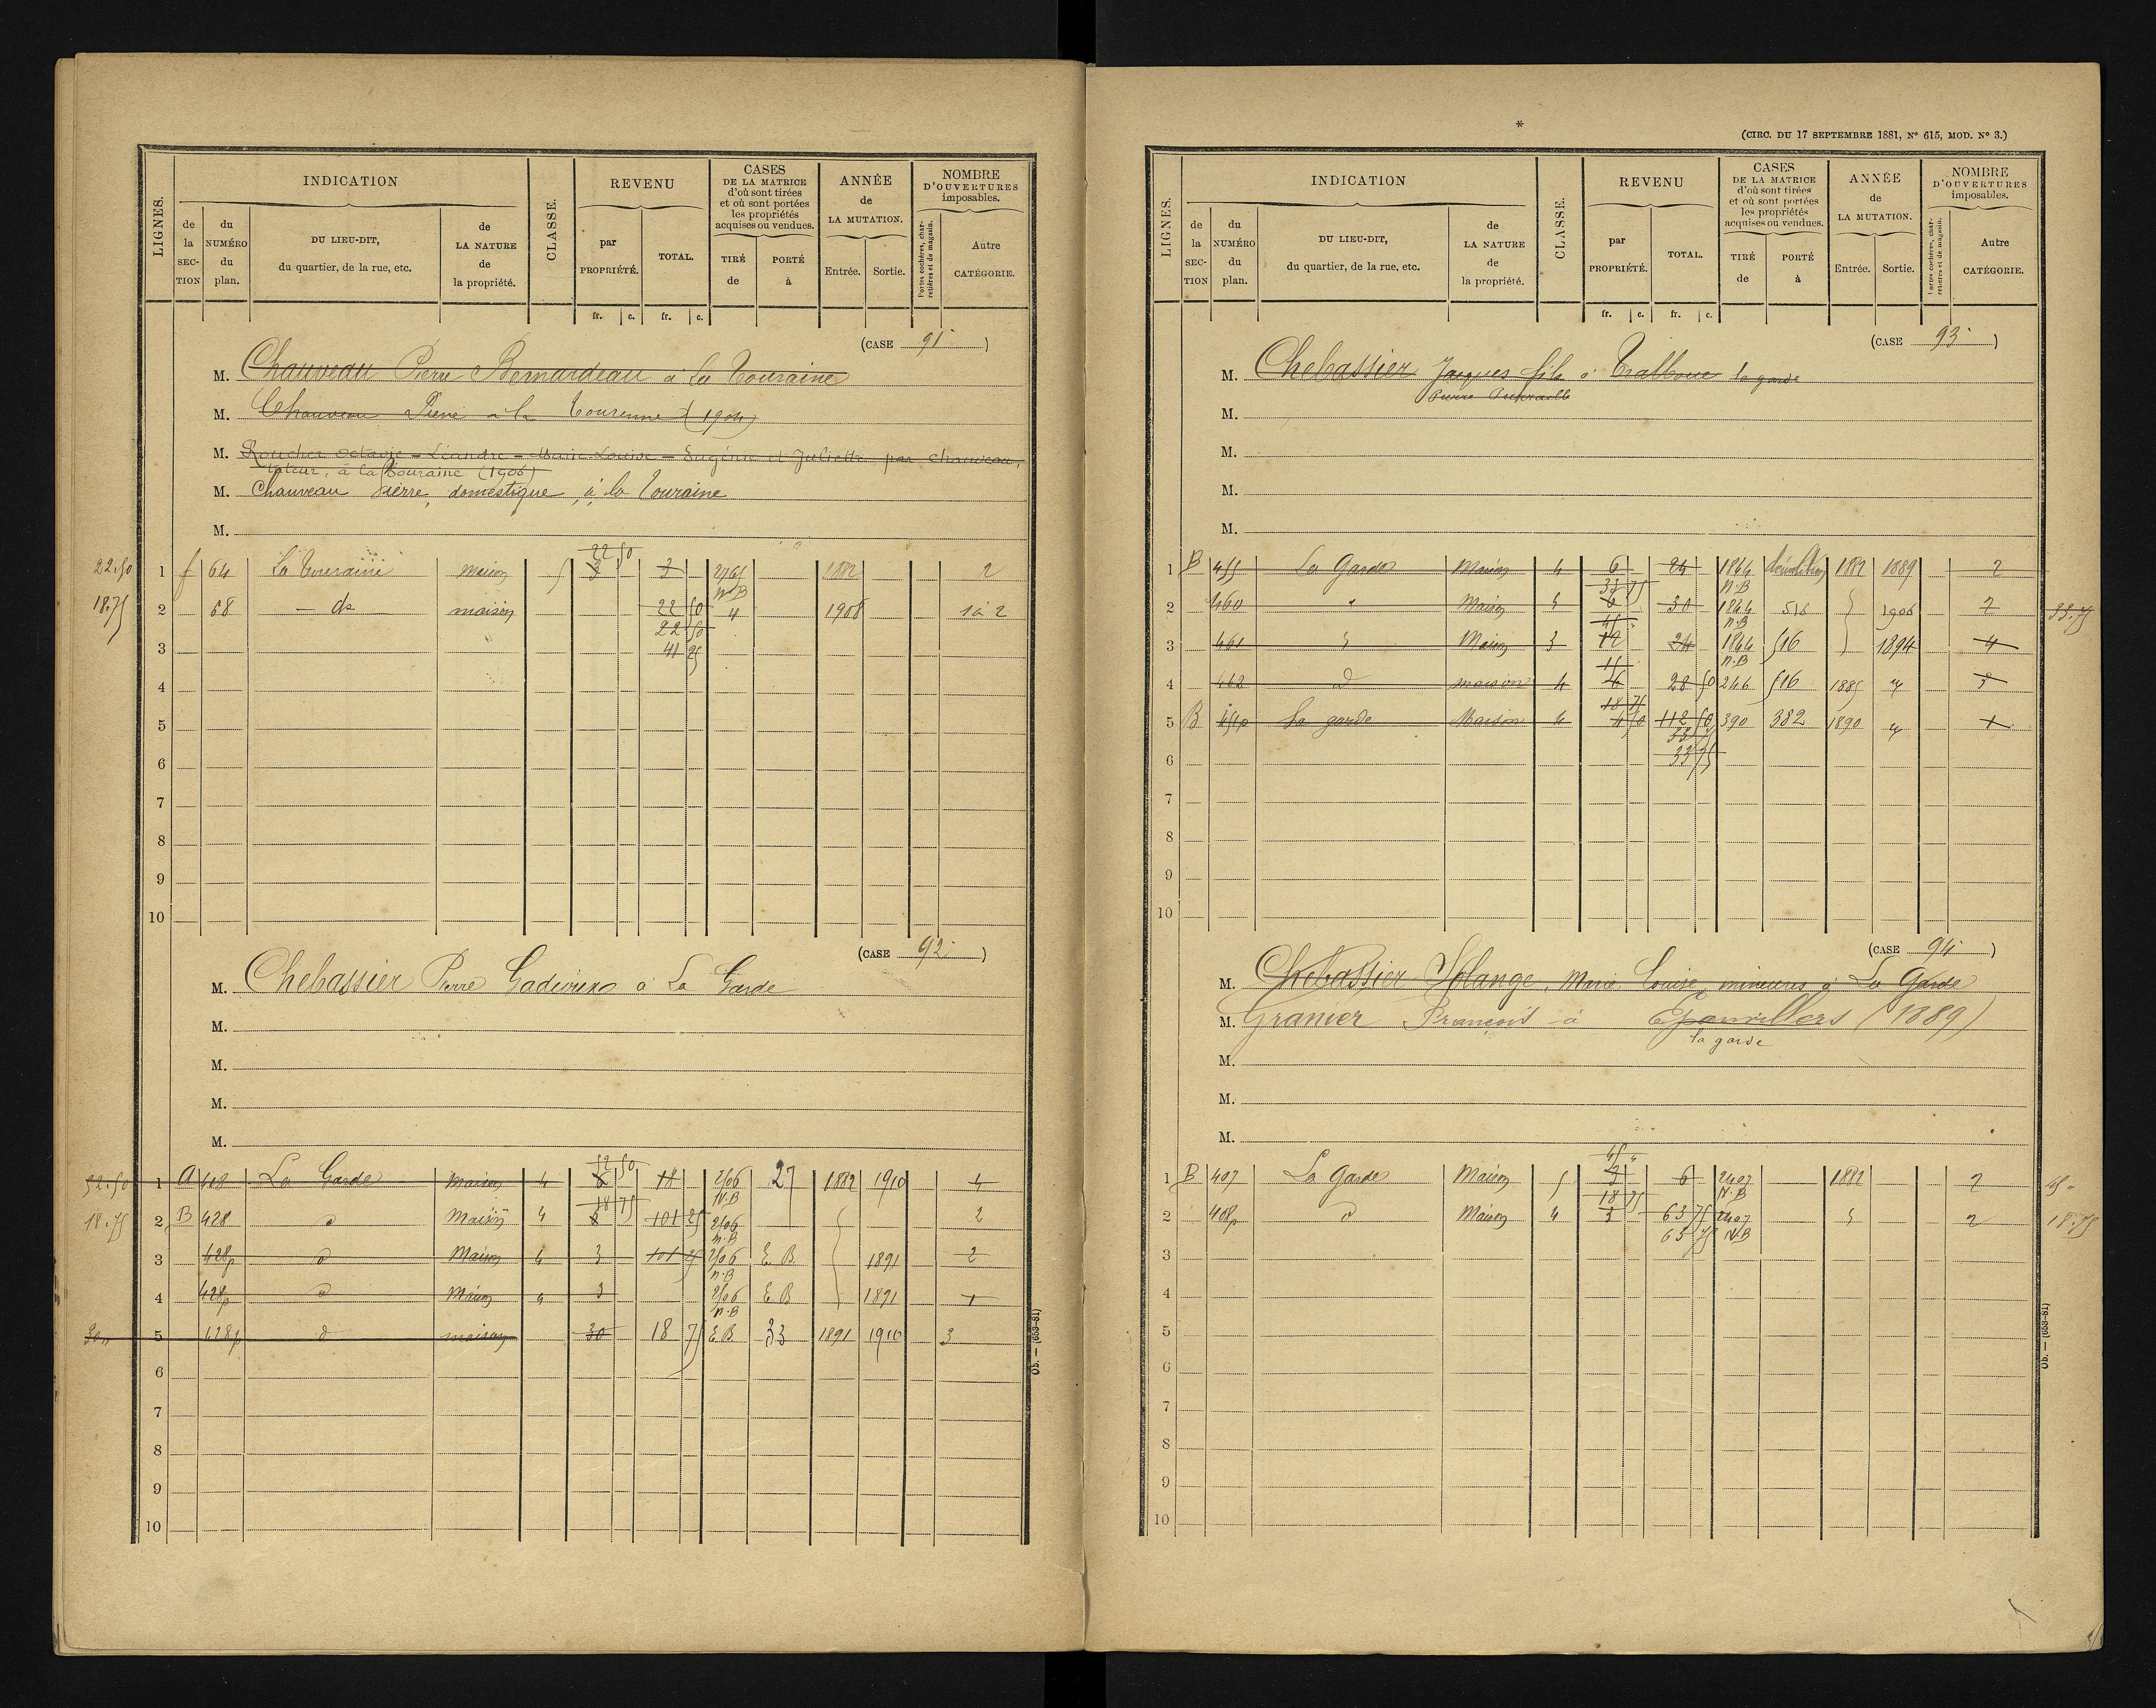 LIGNES.
INDICATION
de la SECTION
du NUMÉRO du plan.
DU LIEU-DIT, du quartier, de la rue, etc.
de LA NATURE de la propriété.
CLASSE.
REVENU
par PROPRIÉTÉ.
TOTAL.
fr. c. fr. c.
CASES DE LA MATRICE d'où sont tirées et où sont portées les propriétés acquises ou vendues.
TIRÉ de
PORTÉ à
ANNÉE de LA MUTATION.
Entrée. Sortie.
NOMBRE D'OUVERTURES imposables.
Portes cochères, charretières et de magasin.
Autre CATÉGORIE.
(CASE 91 )
M. Chauveau Pierre Bernardeau à la Touraine
M. Chauveau Pierre à la Tourenne (1904)
M. Roucher Octavie - Léandre - Marie-Louise - Eugénie et Juliette par Chauveau,
tuteur, à la Touraine (1906)
M. Chauveau Pierre, domestique, à la Touraine
M.
22 50
22.50 1 f 64 La Touraine maison 5 3 3 2765 1882 2
N.B
18.75 2 68 - do maison 22 50 " 1908 1 à 2
22 50
3 41 25
4
5
6
7
8
9
10
(CASE 92 )
M. Chebassier Pierre à La Garde
M.
M.
M.
M.
52 50
52.50 1 A 418 La Garde maison 4 6 18 2506 27 1882 1910 4
18 75 N.B
18.75 2 B 428 d Maison 4 101 25 2506 2
N.B
3 428p d Maison 4 3 101 25 2506 E.B. 1891 2
N.B
4 428p d Maison 4 3 2506 E.B 1891 1
N.B
30 " 5 428p d maison 30 18 75 E.B 33 1891 1910 3
6
7
8
9
10
Ob. — (653-81)
*
(CIRC. DU 17 SEPTEMBRE 1881, N° 615, MOD. N° 3.)
LIGNES.
INDICATION
de la SECTION
du NUMÉRO du plan.
DU LIEU-DIT, du quartier, de la rue, etc.
de LA NATURE de la propriété.
CLASSE.
REVENU
par PROPRIÉTÉ.
TOTAL.
fr. c. fr. c.
CASES DE LA MATRICE d'où sont tirées et où sont portées les propriétés acquises ou vendues.
TIRÉ de
PORTÉ à
ANNÉE de LA MUTATION.
Entrée. Sortie.
NOMBRE D'OUVERTURES imposables.
Portes cochères, charretières et de magasin.
Autre CATÉGORIE.
(CASE 93 )
M. Chebassier Jacques fils à la garde
Pierre
M.
M.
M.
M.
1 B 455 La Garde Maison 4 6 24 1844 démolition 1882 1889 2
33 75 N.B
2 460 " Maison 4 6 30 1844 516 1906 2 33.75
45 " N.B
3 461 Maison 3 12 34 1844 516 1894 4
15 N.B
4 462 d maison 4 28 50 246 516 1885 3
18 75
5 B 451p La garde Maison 4 4 50 112 50 390 382 1890 1
33 75
6 33 75
7
8
9
10
(CASE 94 )
M. Chebassier Solange, Marie Louise, mineures à La Garde
M. Granier François à Epanvillers (1889)
la garde
M.
M.
M.
45 "
1 B 407 La Garde Maison 5 3 6 2407 1882 2 45 -
18 75 N.B
2 408p d Maison 4 3 63 75 2407 2 18.75
63 75 N.B
3
4
5
6
7
8
9
10
Ob. — (653-81)